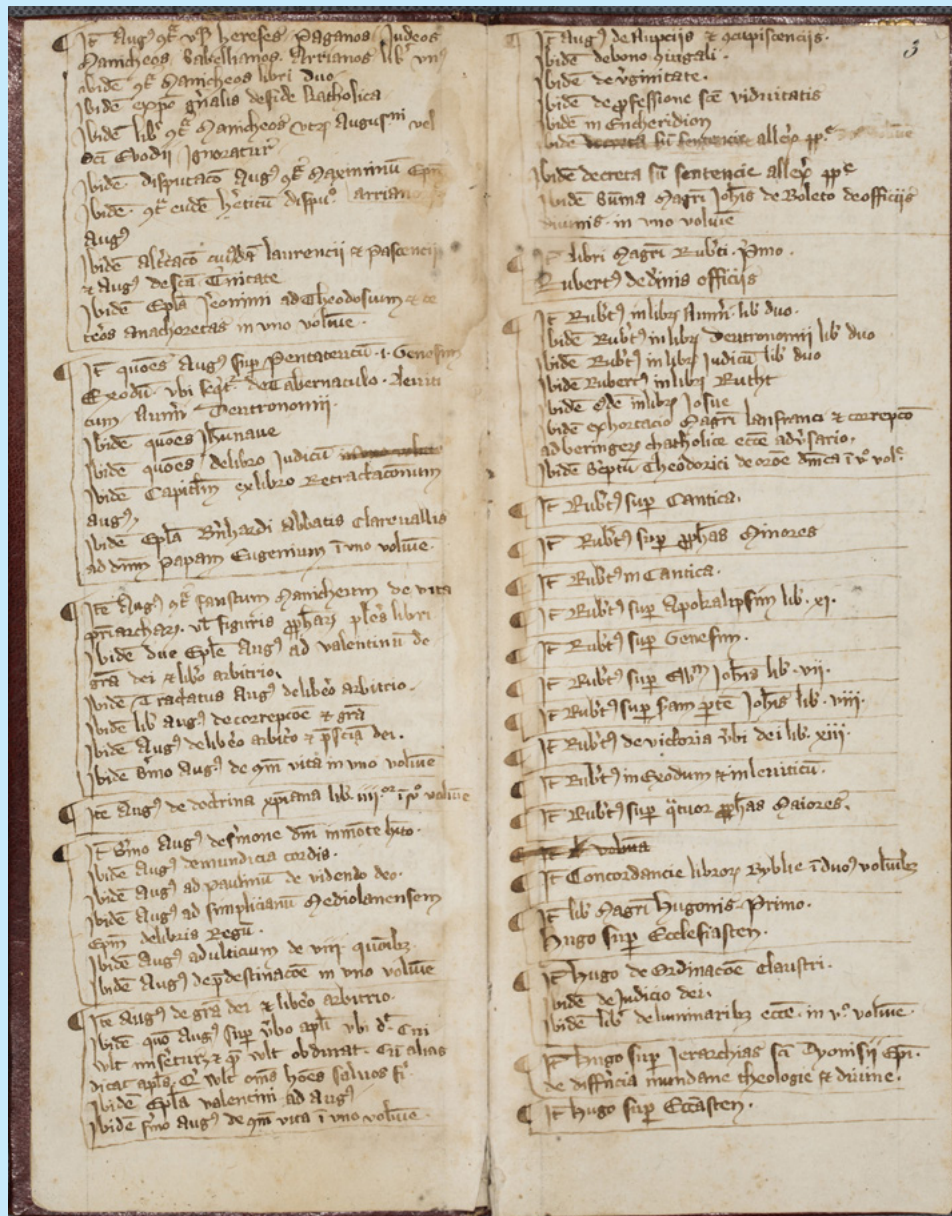 It Augꝰ ꝯtͣ vqꝫ hereses Paganos Judeos
Manicheos Sabellianos Arrianos libͬ vnꝰ
Ibidē ꝯtͣ Manicheos libri duo
Ibidē expo gn̄alis de fide Katholica
Ibidē libͬ ꝯtͣ Manicheos vtrꝫ Augustini vel
sc̄i Evodii Ignoratur
Ibidē disputacō Augꝰ ꝯtͣ Maximinū Epm̄
Ibidē ꝯtͣ eudē hēticū dispuͦ arriano
Augꝰ
Ibidē alt̄cacō cuiꝰdā laurencii et Pascencii
et Augꝰ de sc̄a Trinitate
Ibidē Epl̄a Jeronimi ad Theodosium et ce
teros anachoretas in vno volūe
It quōes Augꝰ suꝑ Pentateucū .i. Genesim
Exodū vbi seqt͛ de Tabernaculo leuiti
cum Num̄i Deutronomii
Ibidē quōes Ihūnaue
Ibidē quōes de libro Judicū
Ibidē Capitl̄m ex libro Retractacōnum
Augꝰ
Ibidē Epl̄a Bn̄hardi Abbatis Clareuallis
ad dn̄m Papam Eugenium ī vno volūe
Itē Augꝰ ꝯtͣ faustum Manicheum de vita
pr̄iarcharꝫ vl̄ figuris ꝓph̄arꝫ ples libri
Ibidē due Epl̄e Augꝰ ad valentinū de
gr̄a dei et lib̄o arbitrio
Ibidē Tractatus Augꝰ de lib̄o arbitrio
Ibidē lib Augꝰ de correpcōe et gr̄a
Ibidē Augꝰ de lib̄o arbit̄o et p̄scīa dei
Ibidē s̄mo Augꝰ de qm̄ vita in vno volūe
Itē Augꝰ de doctrina xp̄iana lib. iiii.ͦͬ ī vͦ volūe
It S̄mo Augꝰ de s̄mone dn̄i in mōte hīto
Ibidē Augꝰ de mundicia cordis
Ibidē Augꝰ ad paulinū de videndo deo
Ibidē Augꝰ ad simplicianū Mediolanensem
Epm̄ de libris Regū
Ibidē Augꝰ ad ulticium de viii quōibꝫ
Ibidē Augꝰ de p̄destinacōe in vno volūe
Itē Augꝰ de gr̄a dei et lib̄o arbitrio
Ibidē quō Augꝰ suꝑ v̄bo apl̄i vbi dͬ Cui
vlt miseret͛ et qͫ vlt obdurat Cū alias
dicat apl̄s qͥ vlt om̄s hōes saluos fͥ
Ibidē Epl̄a valentini ad Augꝰ
Ibidē s̄mo Augꝰ de qm̄ vita ī vno volūe
3
It Augꝰ de Nupciis et ꝯcupiscenciis
Ibidē de bono ꝯiugali
Ibidē de v̄ginitate
Ibidē de ꝓfessione sc̄e viduitatis
Ibidē in Encheridion
Ibidē decreta sū sentencie allex̄ pp̄e
Ibidē decreta sū sentencie allex̄ pp̄e
Ibidē Sūma Magr̄i Joh̄is de Boleto de officiis
diuinis in vno volūe
It libri Magr̄i Rub̄ti p̄mo
Rubertus de diuinis officiis
It Rub̄tꝰ in librꝫ Num̄i lib duo
Ibidē Rub̄tꝰ in librꝫ Deutronomii lib duo
Ibidē Rub̄tꝰ in librꝫ Judicū lib duo
Ibidē Rubertꝰ in librꝫ Rutht
Ibidē Edē in librꝫ Josue
Ibidē exhortacio Magr̄i lanfranci et correpcō
ad beringerꝫ chatholice ecc̄e adv̄sario
Ibidē Sc̄ptū Theodorici de orōe dn̄ica ī vͦ volͤ
It Rub̄tꝰ suꝑ Cantica
It Rub̄tꝰ suꝑ ꝓph̄as Minores
It Rub̄tꝰ in Cantica
It Rub̄tꝰ suꝑ Apokalipsim lib. xi.
It Rub̄tꝰ suꝑ Genesim
It Rub̄tꝰ suꝑ Ewͫ Joh̄is lib. vii.
It Rub̄tꝰ suꝑ sc̄am p̄tē Joh̄is lib. viii.
It Rub̄tꝰ de victoria v̄bi dei lib. xiii.
It Rub̄tꝰ in Exodum et in leuiticū
It Rub̄tꝰ suꝑ q̄tuor ꝓph̄as Maiores
It volūa
It Concordancie librorꝫ Byblie ī duoꝰ volūibꝫ
It lib Magr̄i Hugonis Primo
Hugo suꝑ Ecclesiasten
It Hugo de Ordinacōe Claustri
Ibidē de Judicio dei
Ibidē libͬ de luminaribꝫ ecc̄e in vͦ volūe
It Hugo suꝑ Jerarchias sc̄i Dyonisii Ep̄i
de diffn̄cia mundane theologie et diuine
It Hugo suꝑ Ecc̄asten